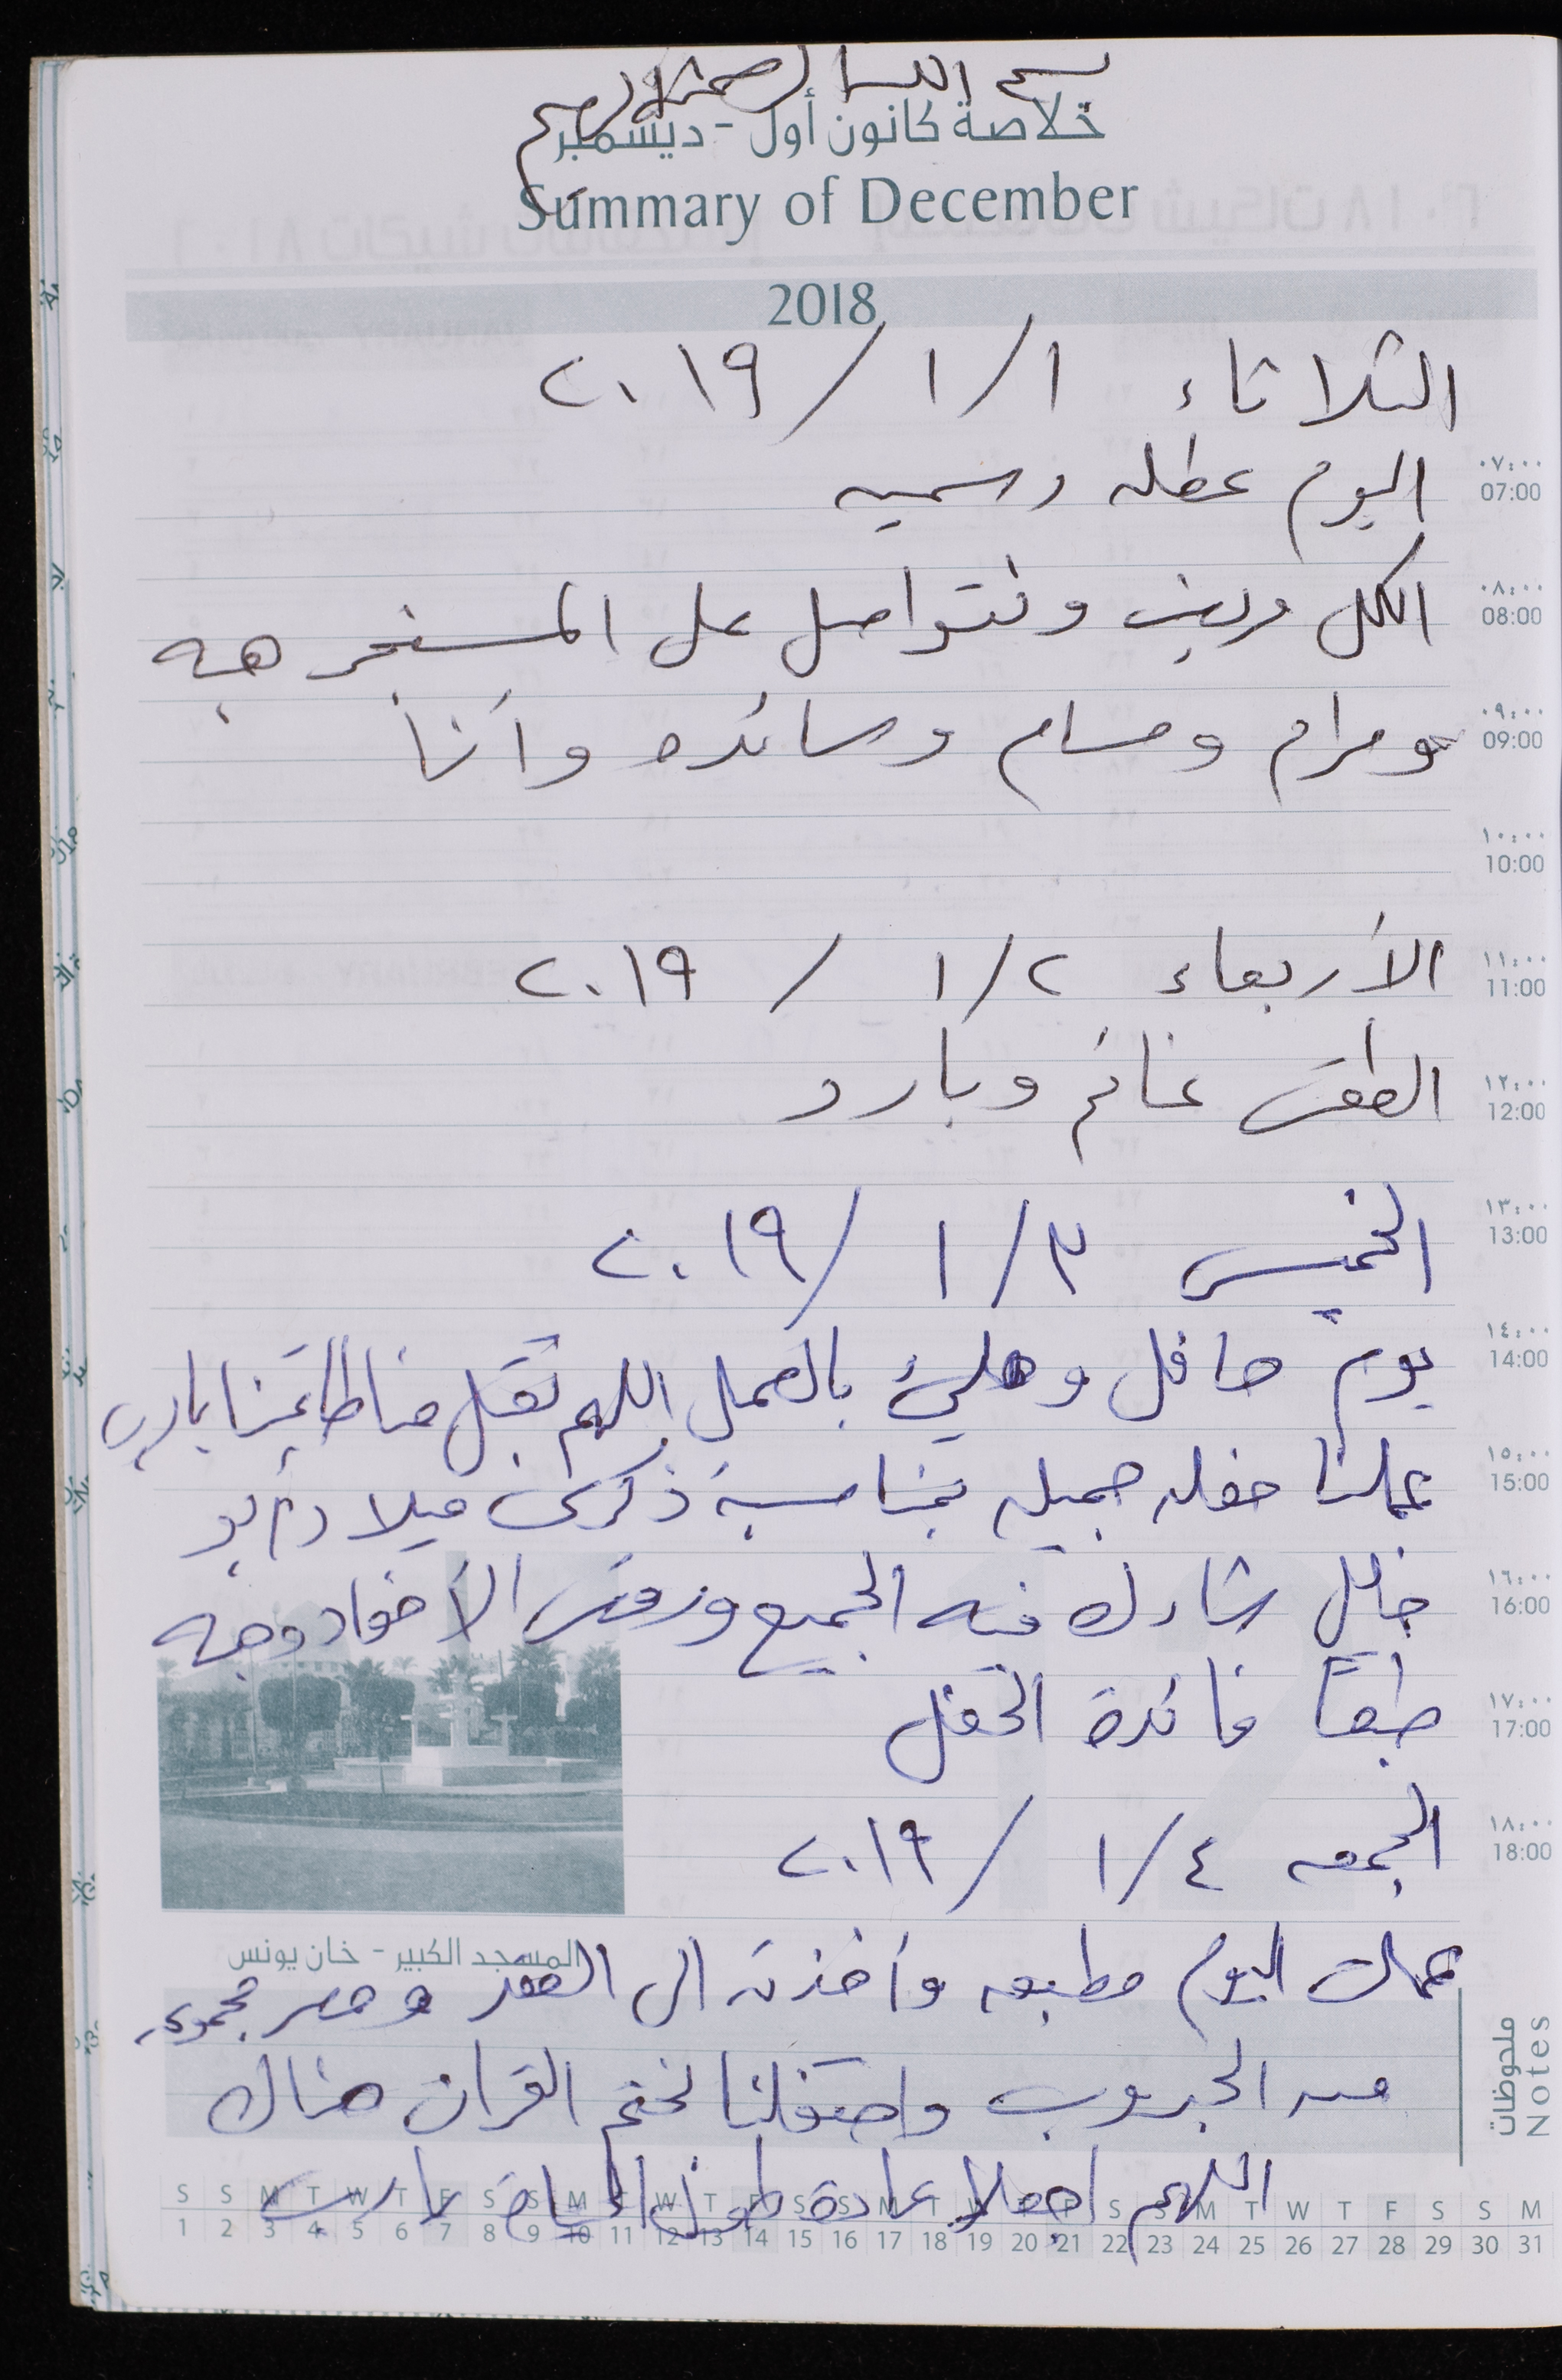 بسم الله الرحمن الرحيم
خلاصة كانون أول - ديسمبر
Summary of December
2018
الثلاثاء ١/١/٢٠١٩
٠٧:٠٠
07:00
اليوم عطله رسميه
٠٨:٠٠
08:00
الكل وبنتواصل على المسنجر هبه
٠٩:٠٠
09:00
ومرام وحسام ورسائده وأنا
١٠:٠٠
10:00
الأربعاء ١/٢/٢٠١٩
١١:٠٠
11:00
الطقس غائم وبارد
١٢:٠٠
12:00
الخميس ١/٣/٢٠١٩
١٣:٠٠
13:00
يوم حافل ومليئ بالعمل اللهم تقبل منا طاعتنا يارب
١٤:٠٠
14:00
عملنا حفله جميله بمناسبة ذكرى ميلاد
١٥:٠٠
15:00
شارك فيه الجميع ورقص الأحفاد وجبه
١٦:٠٠
16:00
طبعاً فائدة الحفل
١٧:٠٠
17:00
الجمعه ١/٤/٢٠١٩
١٨:٠٠
18:00
المسجد الكبير - خان يونس
عملت اليوم مطبعه وأخذته الى مجموعه
من الجروب واحتفلنا لختم القران هناك
ملحوظات
Notes
اللهم اجعلها عادة طول الحياة يارب
S S M T W T F S S M T W T F S S M T W T F S S M T W T F S S M
1 2 3 4 5 6 7 8 9 10 11 12 13 14 15 16 17 18 19 20 21 22 23 24 25 26 27 28 29 30 31